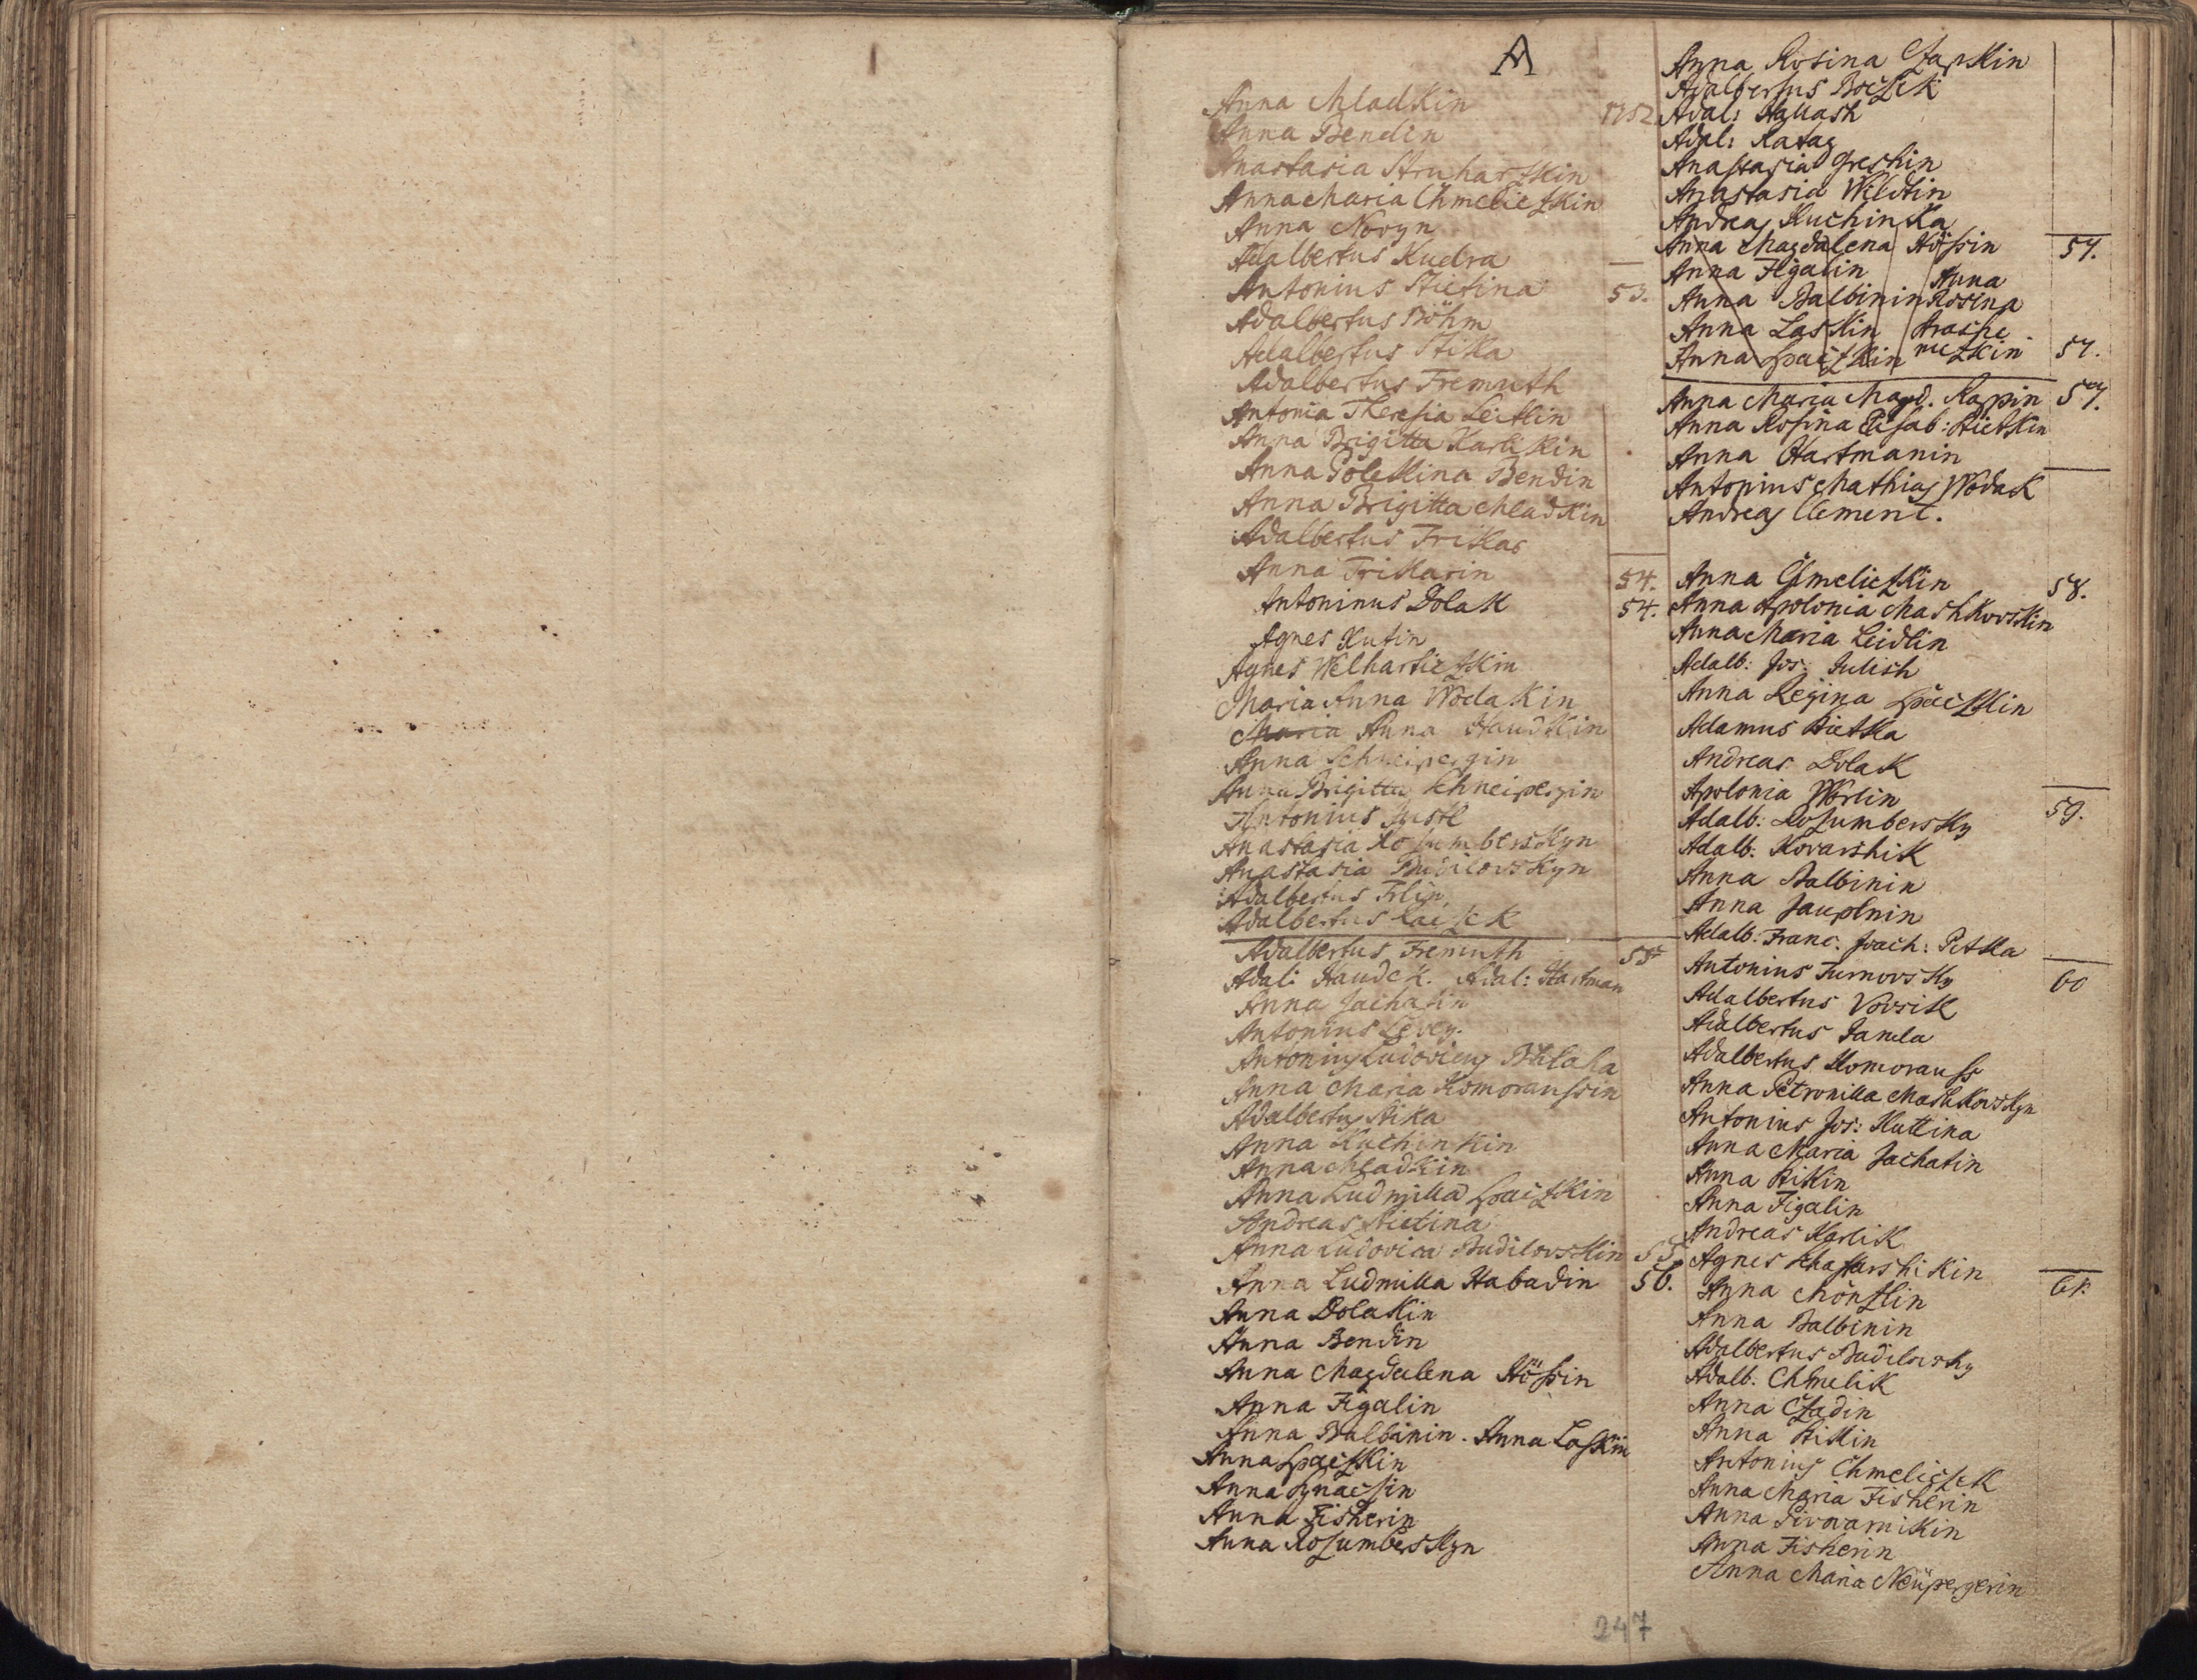 A
Anna Mladkin 1752
Anna Bendin
Anastasia Struharzkin
Anna Maria Chmelitzkin
Anna Novyn
Adalbertus Kudra
Antonius Stietina 53.
Adalbertus Böhm
Adalbertus Stika
Adalbertus Fremuth
Antonia Theresia Leitlin
Anna Brigitta Karlikin
Anna Bendin
Anna Brigitta Mladkin
Adalbertus Frikas
Anna Frikasin 54.
Antoninus Dolak 54.
Agnes Kutin
Agnes Welhartitzkin
Maria Anna Wodakin
Maria Anna Haudkin
Anna Schneipergin
Anna Brigitta Schneipergin
Antonius Justl
Anastasia Rosumberskyn
Anastasia Budilovskyn
Adalbertus Frlin
Adalbertus
Adalbertus Fremuth 55
Adal: Haudek. Adal: Hartman
Anna Jachatin
Antonius Levey.
Antonius Ludovicus Blaha
Anna Maria Komoraussin
Adalbertus Stika
Anna Kuchinkin
Anna Mladkin
Anna Ludmilla Spaczkin
Andreas Stietina
Anna Ludovica Budilovskin 55
Anna Ludmilla Habadin 56.
Anna Dolakin
Anna Bendin
Anna Magdalena Hössin
Anna Figalin
Anna Balbinin. Anna Laskin
Anna Spaczkin
Anna
Anna Fisherin
Anna Rozumberskyn
Anna Rosina Czapkin
Adalbertus Boczek
Adal:
Adal: Rataz
Anastasia Greshin
Anastasia Wildtin
Andreas Kuchinka
Anna Magdalena Hössin 57.
Anna Figalin Anna
Anna Balbinin Rosina
Anna Laskin
Anna Spaczkin 57.
Anna Maria Magd. Rappin 57.
Anna Rosina Elisab: Stietkin
Anna Hartmanin
Antonius Mathias Wodak
Andreas Clement.
Anna Chmelitzkin 58.
Anna Apolonia Mashkovskin
Anna Maria Leidlin
Adalb: Jos: Julish
Anna Regina Spaczkin
Adamus Stietka
Andreas Dolak
Apolonia Worlin
Adalb: Rozumbersky 59.
Adalb. Kovarshik
Anna Balbinin
Anna Jauplnin
Adalb: Franc. Joach: Petka
Antonius Turnovsky 60
Adalbertus Vorsik
Adalbertus Janda
Adalbertus Komorauss
Anna Petronilla Mashkovskyn
Antonius Jos: Kuttina
Anna Maria Jachatin
Anna Stikin
Anna Figalin
Andreas Karlik
Agnes Schaffarshikin
Anna Mönzlin 61.
Anna Balbinin
Adalbertus Budilovsky
Adalb. Chmelik
Anna Czadin
Anna Stikin
Antonius Chmeliczek
Anna Maria Fisherin
Anna Pivovarnikin
Anna Fisherin
Anna Maria Neupergerin
247